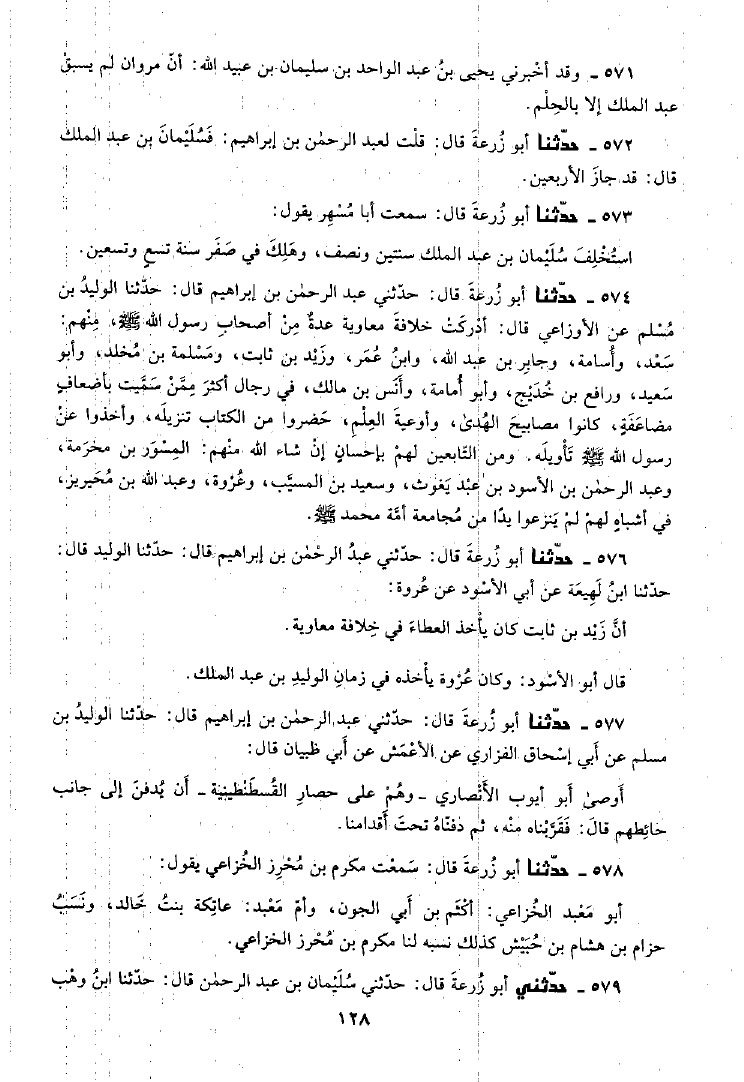 ٥٧١ ـ وقد أخْبرني يحيى بنُ عبد الواحد بن سليمان بن عبيد الله: أنّ مروان لم يسبقْ
عبد الملك إلا بالحِلْم.
٥٧٢ ـ حدّثنا أبو زُرعةَ قال: قلْت لعبد الرحمٰن بن إبراهيم: فَسُلَيْمانَ بن عبد الملك
قال: قد جازَ الأربعين.
٥٧٣ ـ حدّثنا أبو زُرعةَ قال: سمعت أبا مُسْهِر يقول:
استُخْلِفَ سُلَيْمان بن عبد الملك سنتين ونصف، وهَلِكَ في صَفَر سنة تسعٍ وتسعين.
٥٧٤ ـ حدّثنا أبو زُرعةَ قال: حدّثني عبد الرحمٰن بن إبراهيم قال: حدّثنا الوليدُ بن
مُسْلم عن الأوزاعي قال: أدْركَتْ خلافةَ معاوية عدةٌ مِنْ أصحابِ رسول الله ﷺ، مِنْهم:
سَعْد، وأُسامة، وجابر بن عبد الله، وابنُ عُمَر، وزَيْد بن ثابت، ومَسْلمة بن مُخلد، وأبو
سَعيد، ورافع بن خُدَيْج، وأبو أُمامة، وأَنَس بن مالك، في رجال أكثرَ مِمَّنْ سَمَّيت بأضعافٍ
مضاعَفَةٍ، كانوا مصابيحَ الهُدىٰ، وأوعيةَ العِلْمِ، حَضروا من الكتاب تنزيلَه، وأخذوا عنْ
رسول الله ﷺ تَأْويلَه. ومن التّابعين لهمْ بإحسانٍ إنْ شاء الله منْهم: المِسْوَر بن مخرَمة،
وعبد الرحمٰن بن الأسود بن عبْد يَغوث، وسعيد بن المسيَّب، وعُرْوة، وعبد الله بن مُحَيريز،
في أشباهٍ لهمْ لمْ يَنزعوا يدًا من مُجامعة أمّة محمد ﷺ.
٥٧٦ ـ حدّثنا أبو زُرعةَ قال: حدّثني عبدُ الرحْمٰن بن إبراهيم قال: حدّثنا الوليد قال:
حدّثنا ابنُ لَهِيعَة عن أبي الأسْود عن عُروة:
أنَّ زَيْد بن ثابت كان يأْخذ العطاءَ في خِلافة معاوية.
قال أبو الأسْود: وكان عُرْوة يأْخذه في زمانِ الوليدِ بن عبد الملك.
٥٧٧ ـ حدّثنا أبو زُرعةَ قال: حدّثني عبد الرحمٰن بن إبراهيم قال: حدّثنا الوليدُ بن
مسلم عن أبي إسْحاق الفزاري عن الأعْمَش عن أبي ظبيان قال:
أَوصىٰ أبو أيوب الأَنْصاري ـ وهُمْ على حصارِ القُسطَنْطِينِية ـ أَن يُدفنَ إلى جانب
حائِطهم قالَ: فَقَرَّبْناه منْه، ثم دفنّاهُ تحتَ أَقدامنا.
٥٧٨ ـ حدّثنا أبو زُرعةَ قال: سَمعْت مكرم بن مُحْرِز الخُزاعي يقول:
أبو مَعْبد الخُزاعي: أكْثَم بن أبي الجون، وأمّ مَعْبد: عاتِكة بنتُ خَالد، ونَسَبُ
حزام بن هشام بن حُبَيْش كذلك نسبه لنا مكرم بن مُحْرز الخزاعي.
٥٧٩ ـ حدّثني أبو زُرعةَ قال: حدّثني سُلَيْمان بن عبد الرحمٰن قال: حدّثنا ابنُ وهْب
١٢٨